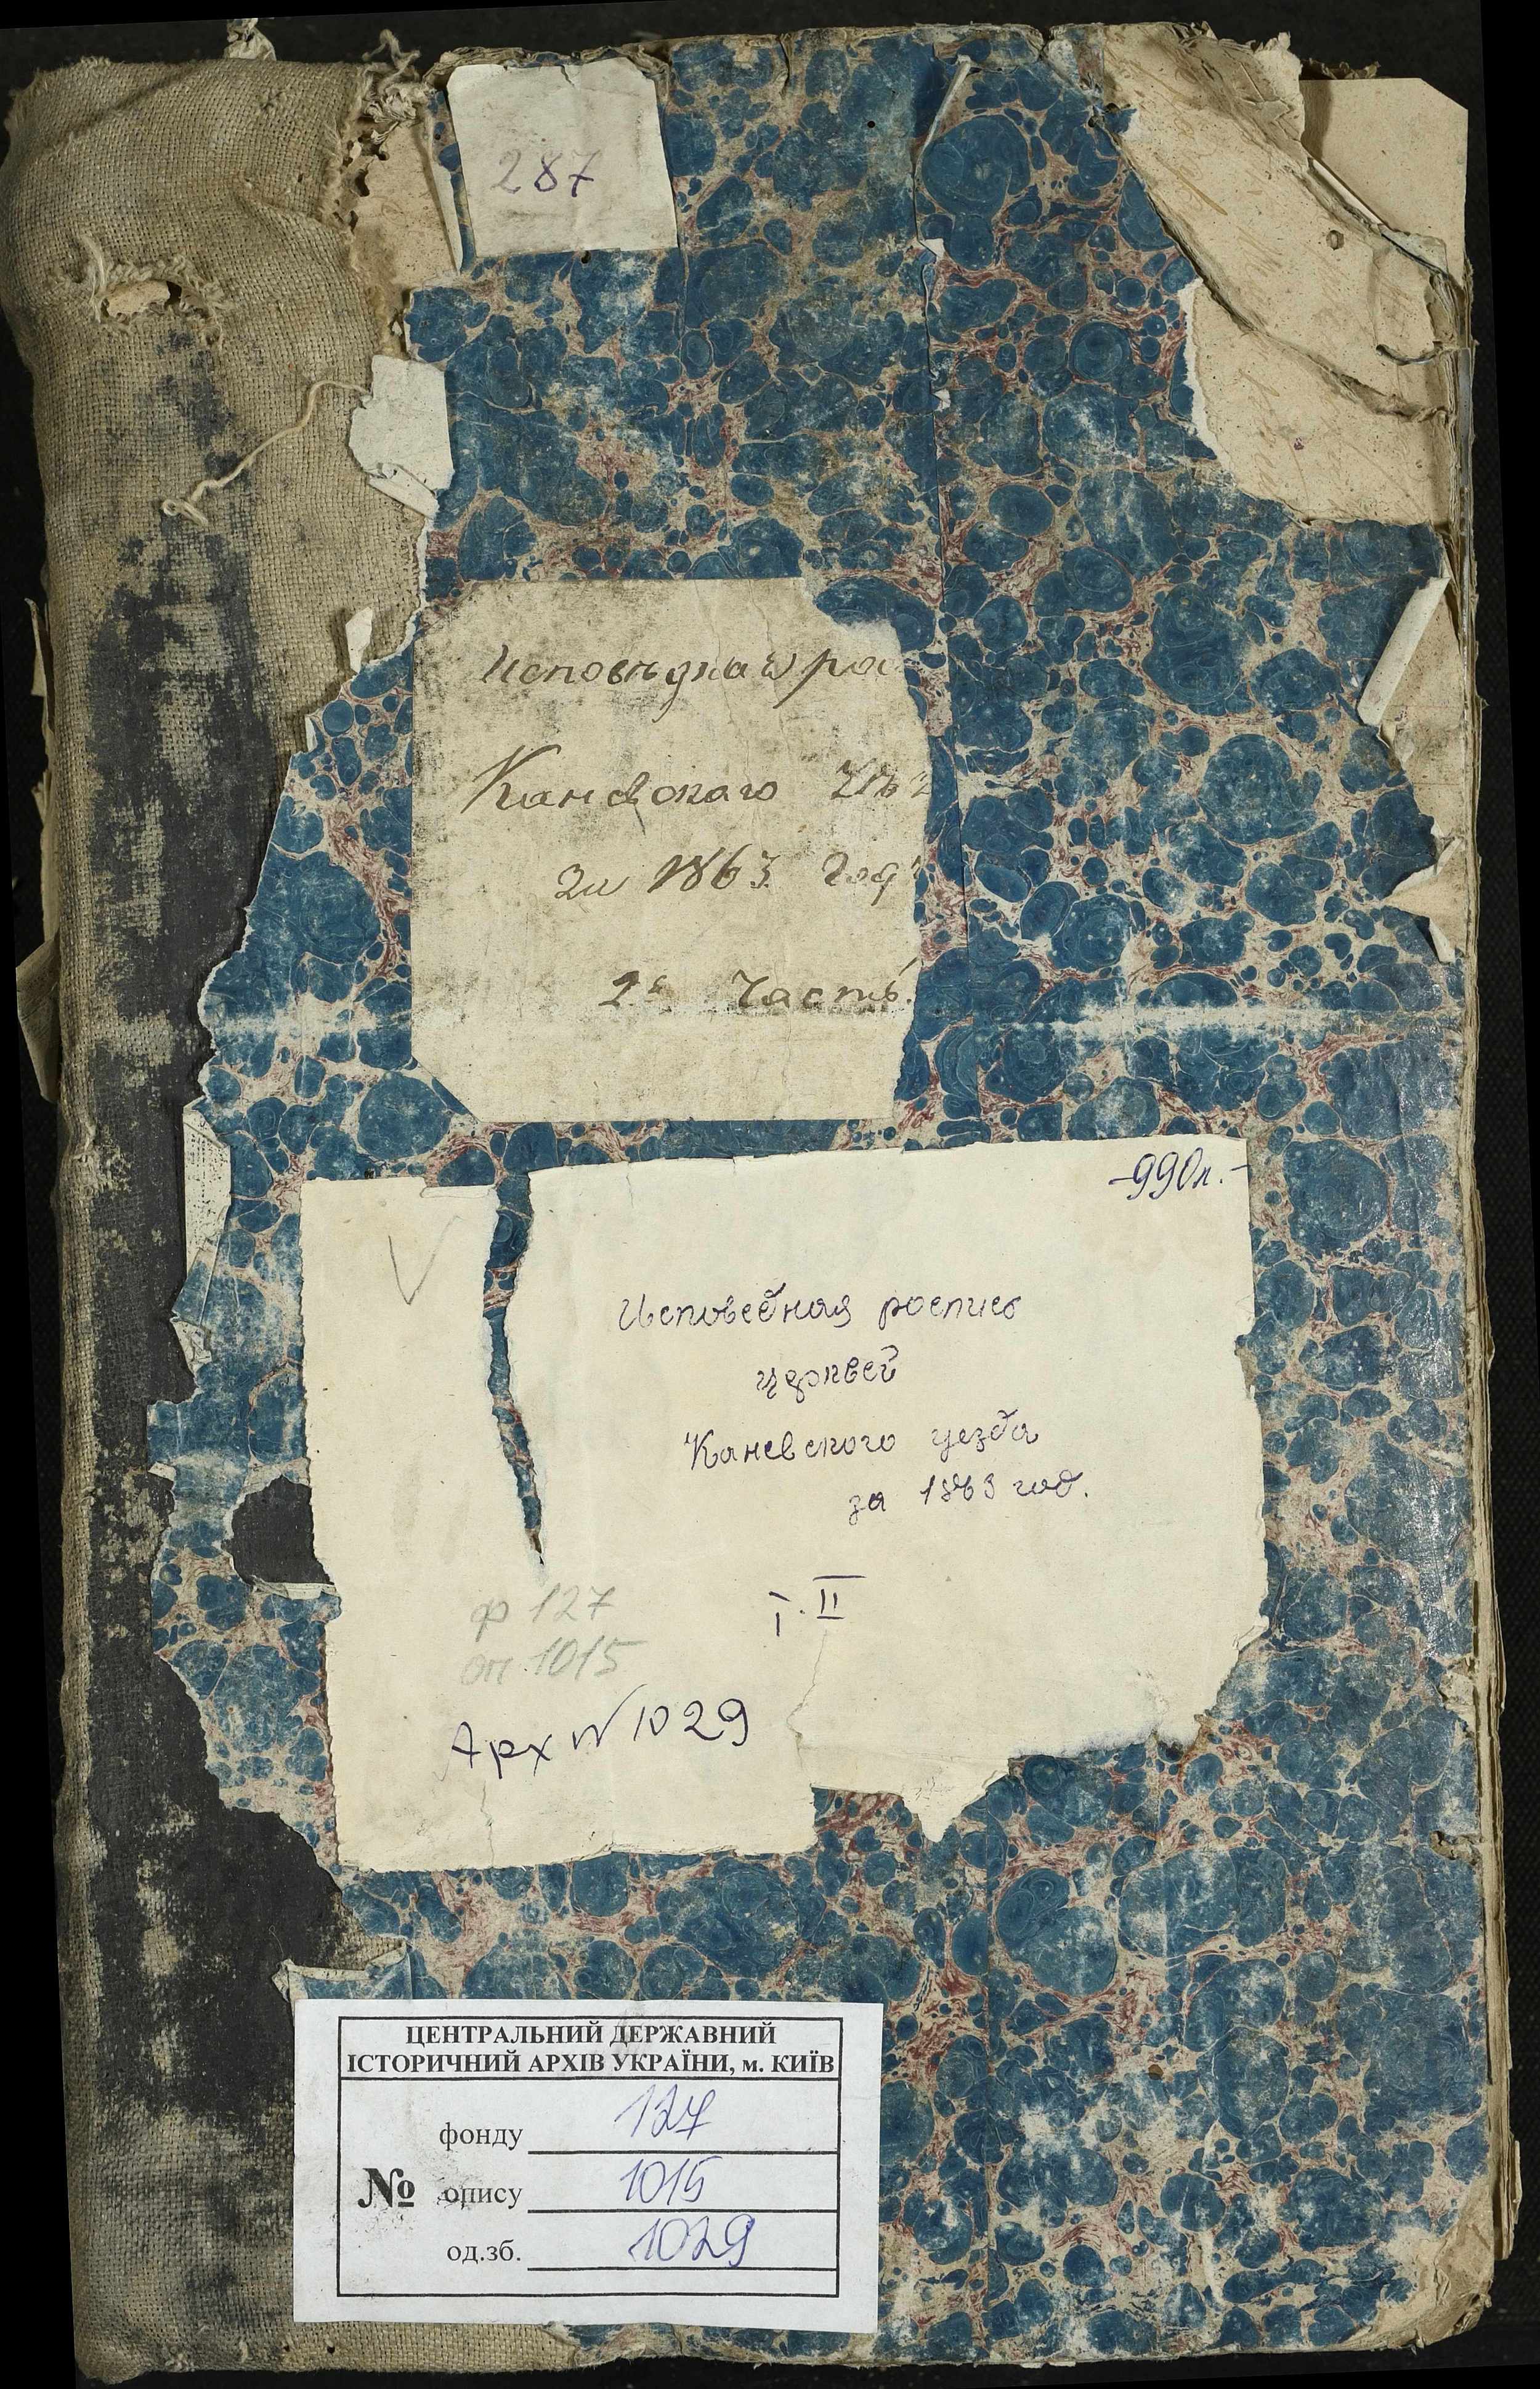 287
Исповѣдная рос
Каневскаго Уѣз
за 1863 Годъ
2я Часть.
-990л.-
Исповедная роспись
церквей
Каневского уезда
за 1863 год.
т. II
ф 127
оп. 1015
Арх № 1029
ЦЕНТРАЛЬНИЙ ДЕРЖАВНИЙ
ІСТОРИЧНИЙ АРХІВ УКРАЇНИ, м. КИЇВ
фонду 127
№ опису 1015
од.зб. 1029